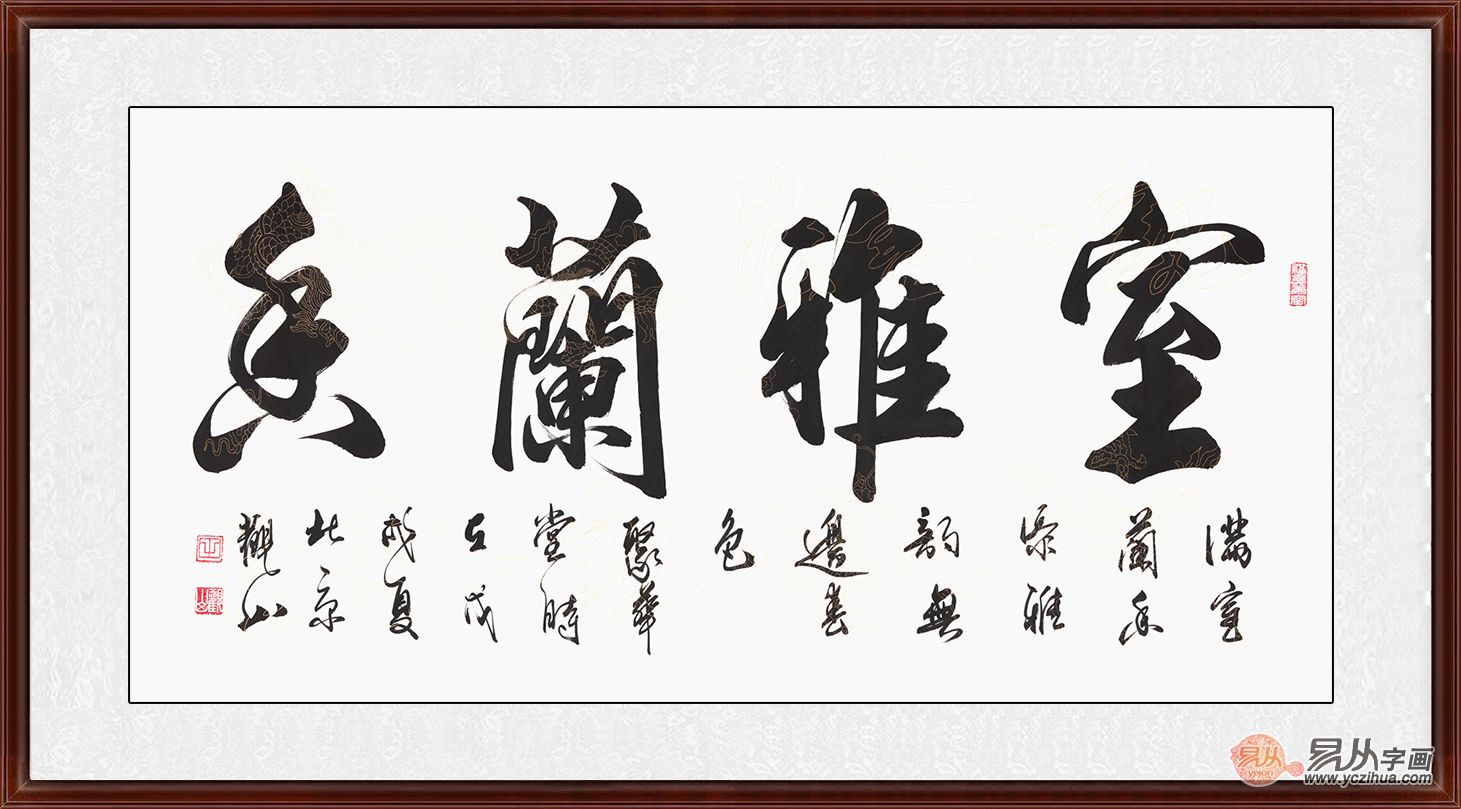 室雅蘭香
滿室
蘭香
添雅
韵無
邊春
色
聚華
堂時
在戊
戌夏
北京
觀山
易从
yigon
易从字画
www.yczihua.com